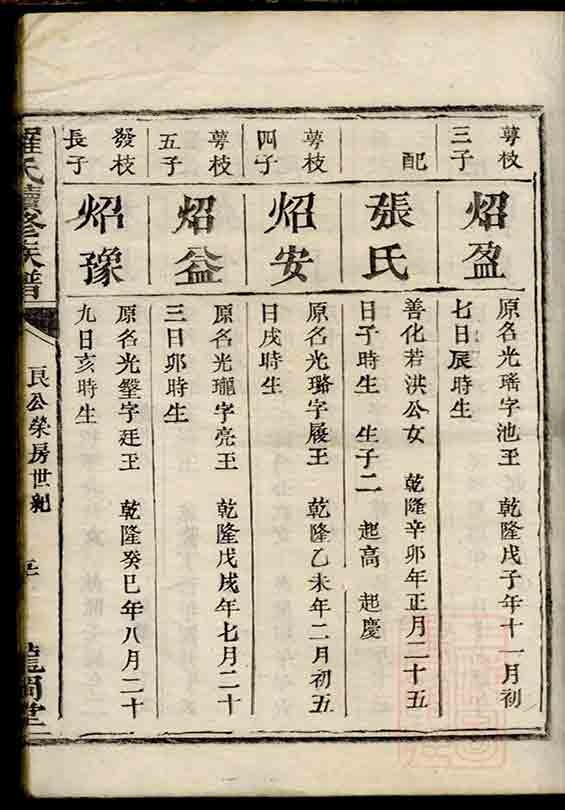 萼枝
三子
炤盈
原名光瑤字池玉 乾隆戊子年十一月初
七日辰時生
配
張氏
善化若洪公女 乾隆辛卯年正月二十五
日子時生 生子二 起高 起慶
萼枝
四子
炤安
原名光璐字履玉 乾隆乙未年二月初五
日戌時生
萼枝
五子
炤益
原名光瓏字亮玉 乾隆戊戌年七月二十
三日卯時生
發枝
長子
炤豫
原名光瑿字廷玉 乾隆癸巳年八月二十
九日亥時生
羅氏續修族譜
良公榮房世紀